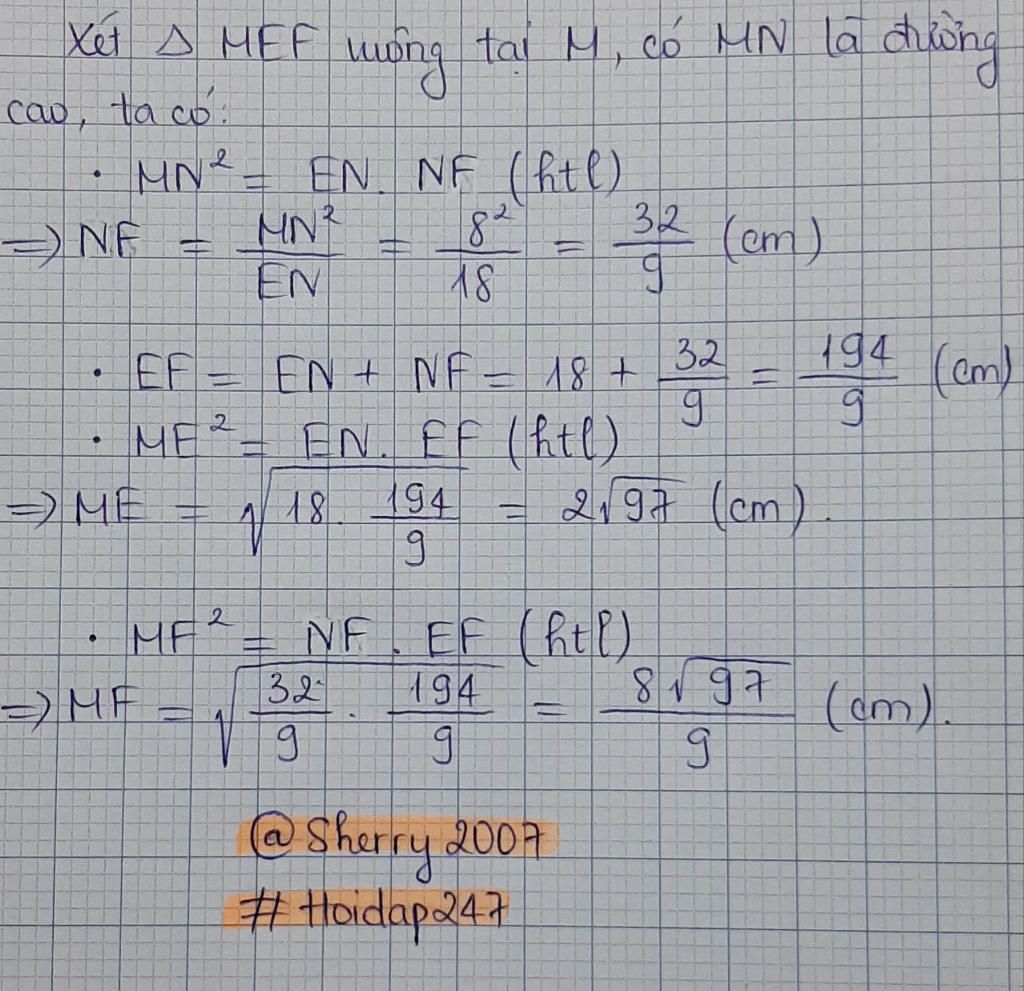 Xét Δ MEF vuông tại M, có MN là đường
cao, ta có:
· MN² = EN. NF (htl)
=> NF = MN²/EN = 8²/18 = 32/9 (cm)
· EF = EN + NF = 18 + 32/9 = 194/9 (cm)
· ME² = EN. EF (htl)
=> ME = √(18. 194/9) = 2√97 (cm).
· MF² = NF. EF (htl)
=> MF = √(32/9 . 194/9) = 8√97/9 (cm).
@Sherry2007
# Hoidap247